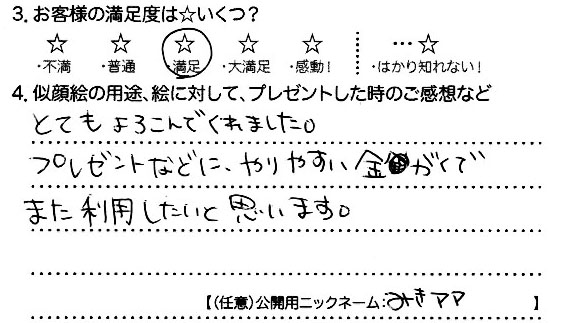 3. お客様の満足度は☆いくつ？
☆ ☆ ☆ ☆ ☆ …☆
・不満 ・普通 ・満足 ・大満足 ・感動！ ・はかり知れない！
4. 似顔絵の用途、絵に対して、プレゼントした時のご感想など
とてもよろこんでくれました。
プレゼントなどに、やりやすい金がくで
また利用したいと思います。
【（任意）公開用ニックネーム：みきママ 】